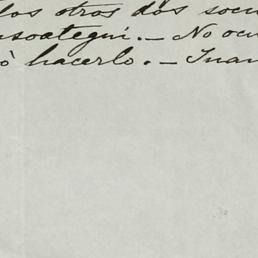 los otros dos socu
nsoategui.— No ocu
ó hacerlo.— Juan